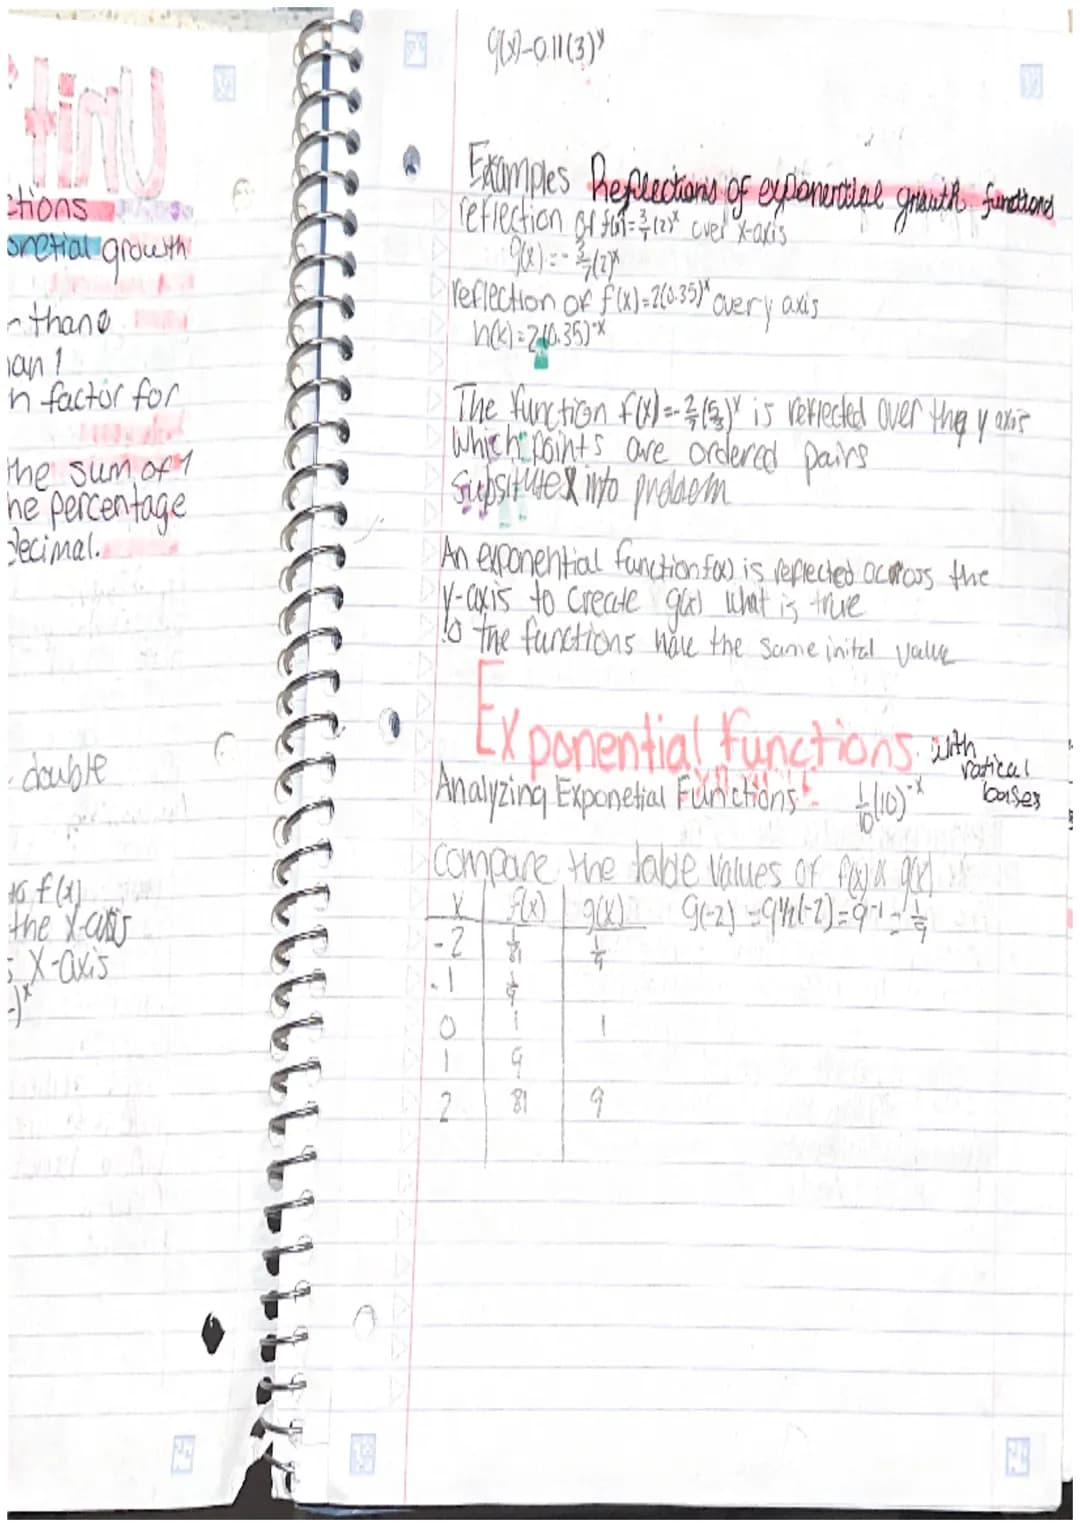 tinU
ctions
onetial growth
than 0
an 1
n factor for
the sum of 1
he percentage
decimal.
double
f(x)
the x-axis
x-axis
g(x)-0.11(3)^x
Examples Reflections of exponential growth functions
reflection of f(x)=3/7(2)^x over x-axis
g(x)=-3/7(2)^x
reflection of f(x)=2(0.35)^x over y axis
h(x)=2(0.35)^-x
The function f(x)=-2/7(5/3)^x is reflected over the y axis
Which points are ordered pairs
Supsitute x into problem
An exponential function f(x) is reflected across the
y-axis to create g(x) what is true
the functions have the same inital value
Exponential functions with
ratical
bases
Analyzing Exponetial Functions 1/10(10)^-x
Compare the table values of f(x) & g(x)
x f(x) g(x) g(-2)=9^1/2(-2)=9^-1=1/9
-2 1/81 1/9
-1 1/9
0 1 1
1 9
2 81 9